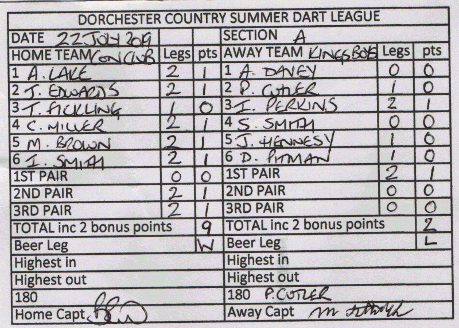 DORCHESTER COUNTRY SUMMER DART LEAGUE
DATE 22 JULY 2019 SECTION A
HOME TEAM CON CLUB Legs pts AWAY TEAM KINGS BOYS Legs pts
1 A. LAKE 2 1 1 A. DAVEY 0 0
2 J. EDWARDS 2 1 2 P. CUTLER 1 0
3 T. FICKLING 1 0 3 I. PERKINS 2 1
4 C. MILLER 2 1 4 S. SMITH 0 0
5 M. BROWN 2 1 5 J. HENNESY 1 0
6 I. SMITH 2 1 6 D. PITMAN 1 0
1ST PAIR 0 0 1ST PAIR 2 1
2ND PAIR 2 1 2ND PAIR 0 0
3RD PAIR 2 1 3RD PAIR 0 0
TOTAL inc 2 bonus points 9 TOTAL inc 2 bonus points 2
Beer Leg W Beer Leg L
Highest in Highest in
Highest out Highest out
180 180 P. CUTLER
Home Capt Away Capt